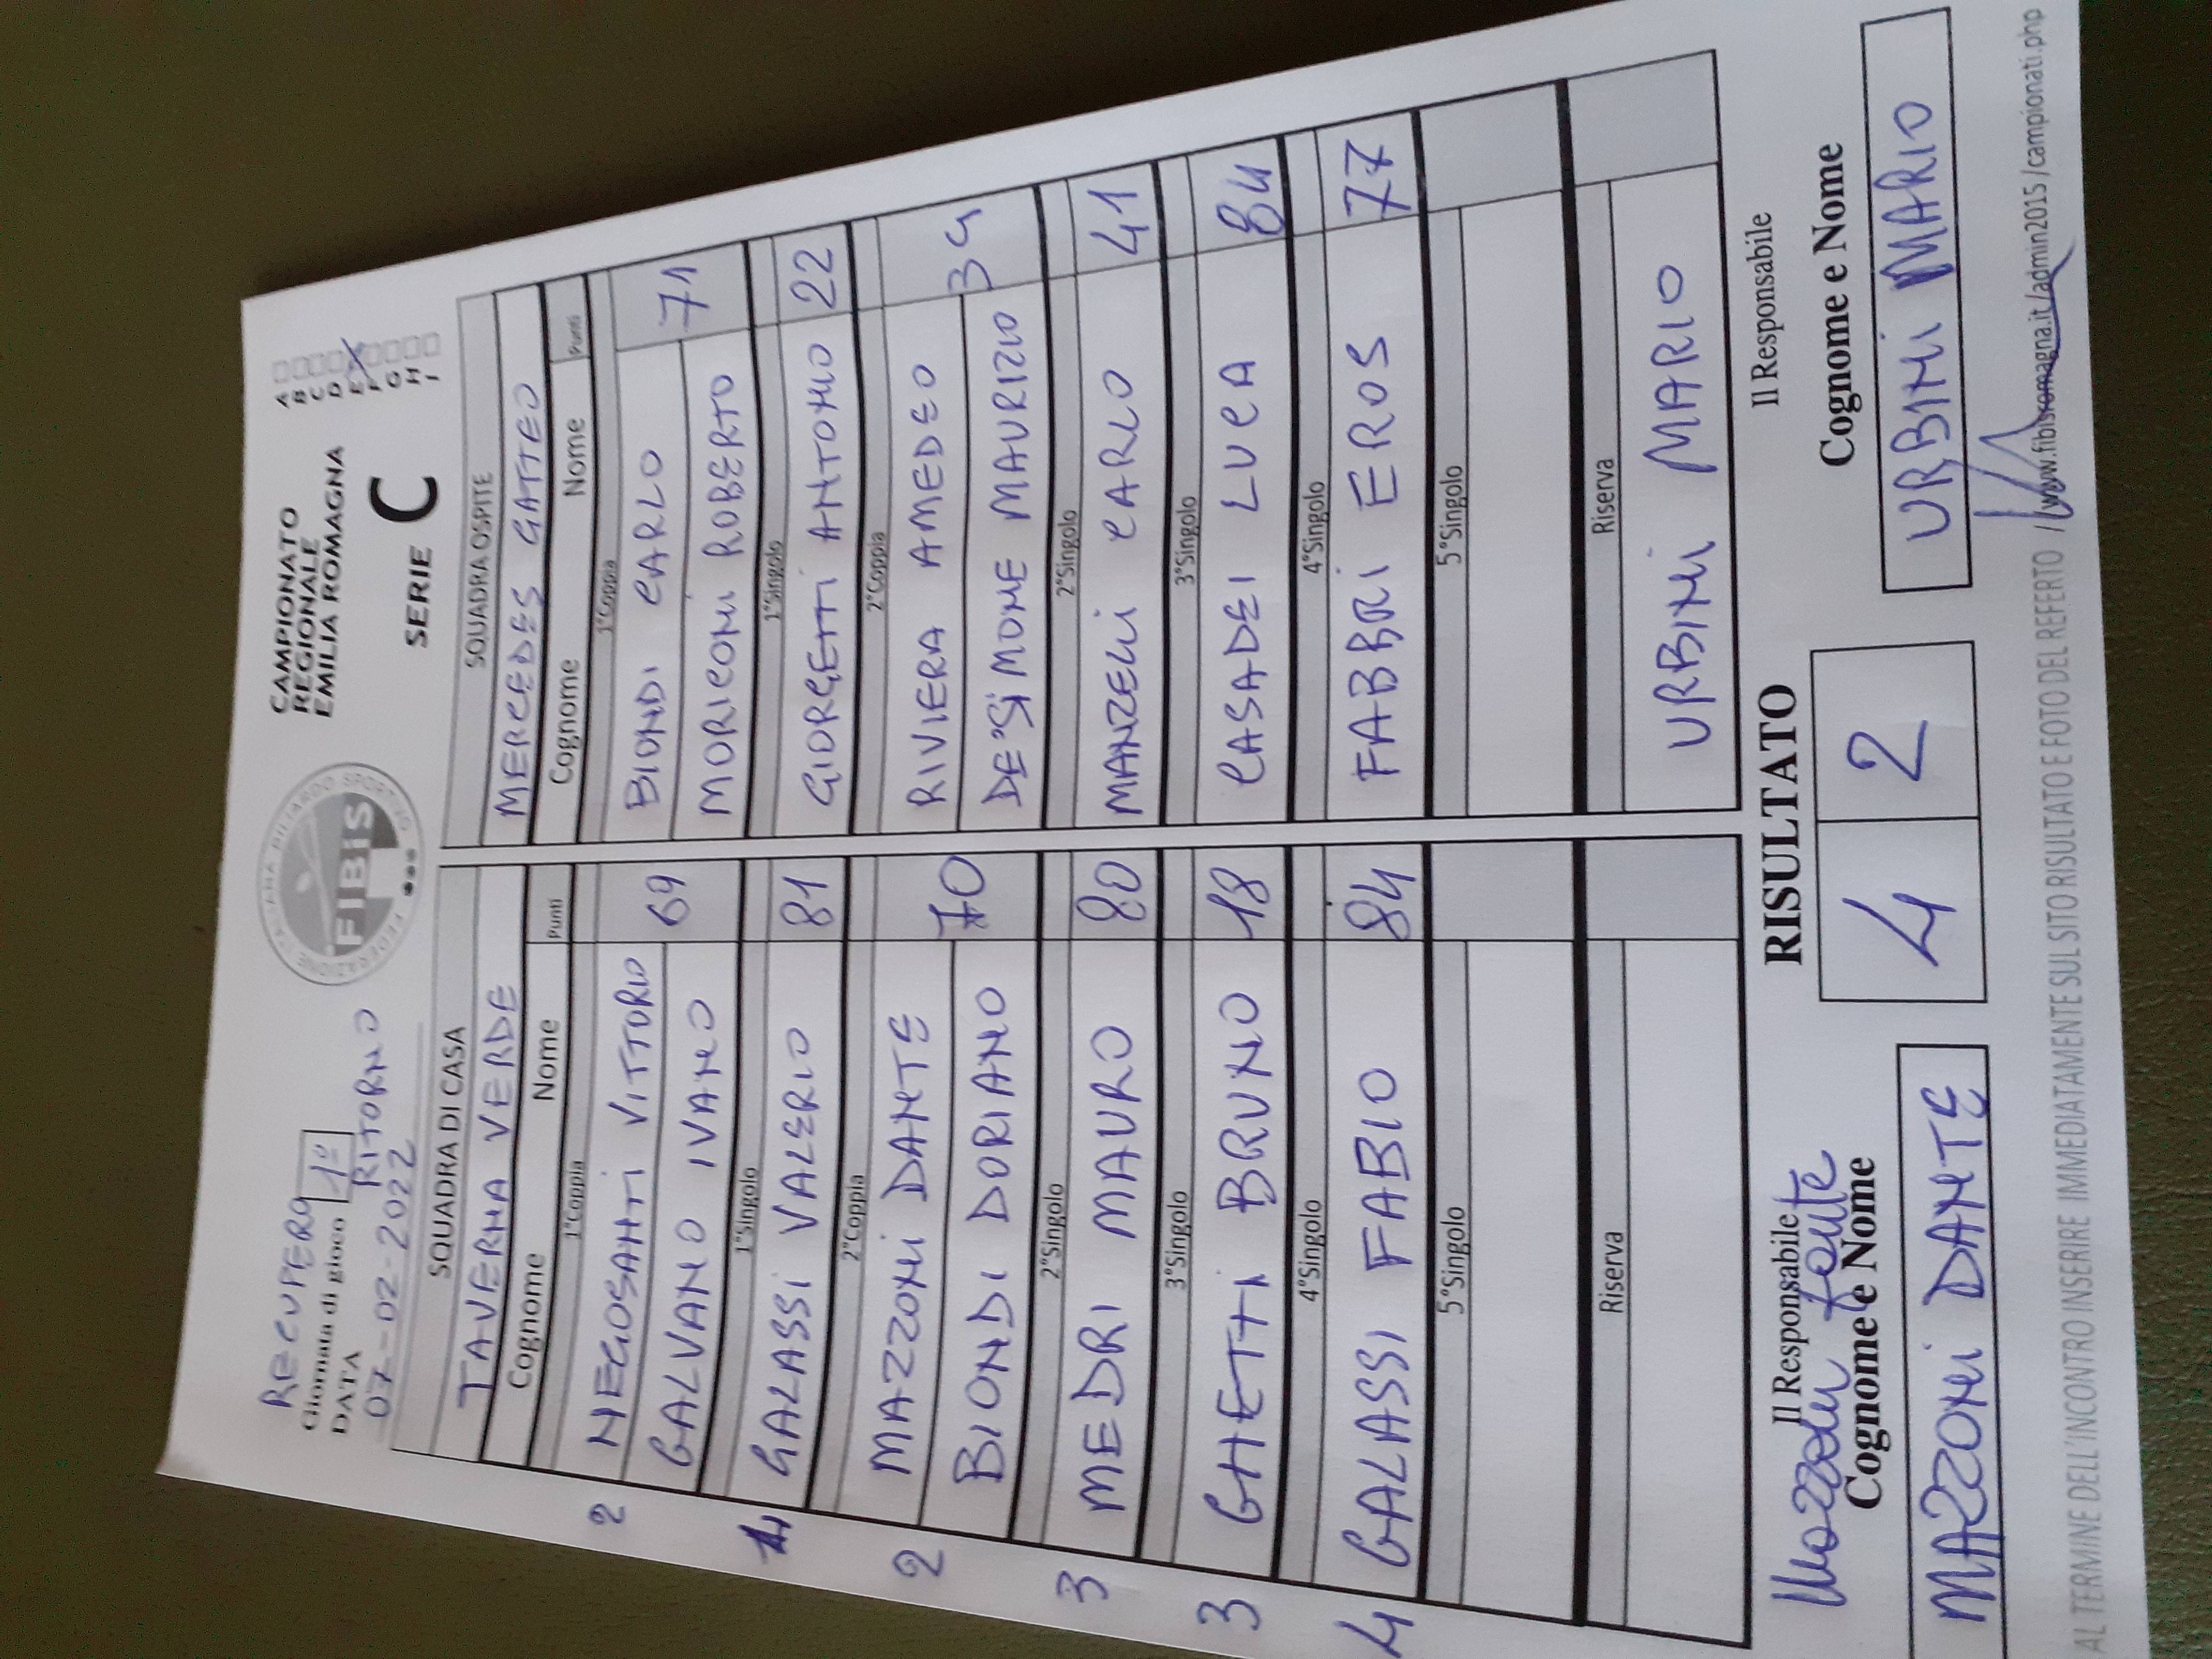 RECUPERO
Giornata di gioco 1°
RITORNO
DATA
07-02-2022
FEDERAZIONE ITALIANA BILIARDO SPORTIVO
FIBIS
CAMPIONATO
REGIONALE
EMILIA ROMAGNA
SERIE C
A
B
C
D
E
F
G
H
I
SQUADRA DI CASA
TAVERNA VERDE
Cognome Nome Punti
1°Coppia
2 NEGOSANTI VITTORIO
GALVANO IVANO 69
1°Singolo
1 GALASSI VALERIO 81
2°Coppia
2 MAZZONI DANTE
BIONDI DORIANO 70
2°Singolo
3 MEDRI MAURO 80
3°Singolo
3 GHETTI BRUNO 18
4°Singolo
4 GALASSI FABIO 84
5°Singolo
Riserva
SQUADRA OSPITE
MERCEDES GATTEO
Cognome Nome Punti
1°Coppia
BIONDI CARLO
MORICONI ROBERTO 71
1°Singolo
GIORGETTI ANTONIO 22
2°Coppia
RIVIERA AMEDEO
DE SIMONE MAURIZIO 34
2°Singolo
MANZELLI CARLO 41
3°Singolo
CASADEI LUCA 84
4°Singolo
FABBRI EROS 77
5°Singolo
Riserva
URBINI MARIO
Il Responsabile
Mazzoni Dante
Cognome e Nome
MAZZONI DANTE
RISULTATO
4 2
Il Responsabile
Cognome e Nome
URBINI MARIO
AL TERMINE DELL'INCONTRO INSERIRE IMMEDIATAMENTE SUL SITO RISULTATO E FOTO DEL REFERTO //www.fibisromagna.it/admin2015/campionati.php